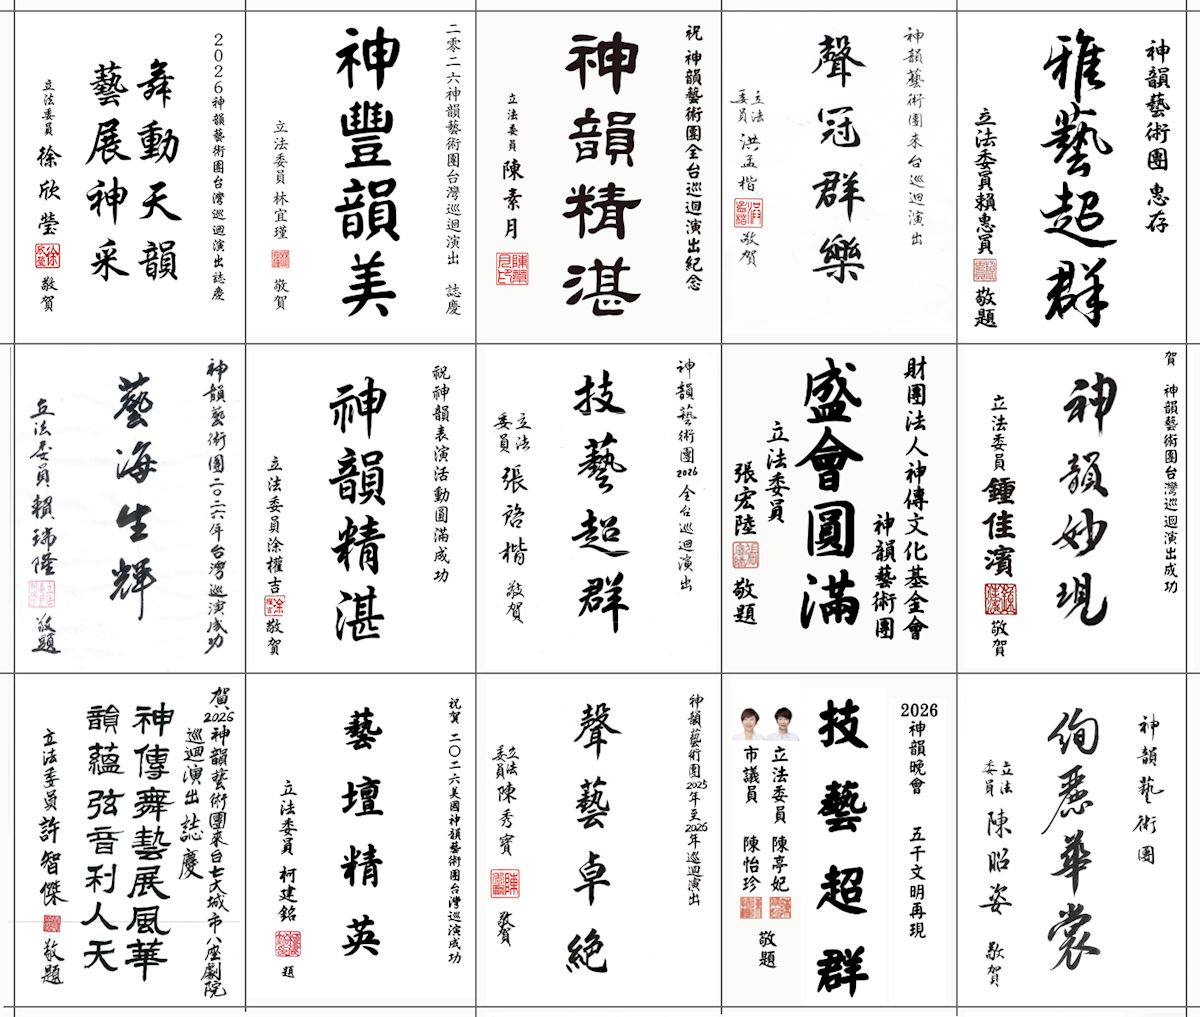 2026神韻藝術團台灣巡迴演出誌慶
舞動天韻
藝展神采
立法委員 徐欣瑩 敬賀
二零二六神韻藝術團台灣巡迴演出 誌慶
神豐韻美
立法委員 林宜瑾 敬賀
祝 神韻藝術團全台巡迴演出紀念
神韻精湛
立法委員 陳素月
神韻藝術團來台巡迴演出
聲冠群樂
立法委員 洪孟楷 敬賀
神韻藝術團 惠存
雅藝超群
立法委員賴惠員 敬題
神韻藝術團二〇二六年台灣巡演成功
藝海生輝
立法委員 賴瑞隆 敬題
祝神韻表演活動圓滿成功
神韻精湛
立法委員涂權吉 敬賀
神韻藝術團2026全台巡迴演出
技藝超群
立法委員 張啓楷 敬賀
財團法人神傳文化基金會
神韻藝術團
盛會圓滿
立法委員
張宏陸 敬題
賀 神韻藝術團台灣巡迴演出成功
神韻妙現
立法委員 鍾佳濱 敬賀
賀2026神韻藝術團來台七大城市八座劇院
巡迴演出誌慶
神傳舞藝展風華
韻蘊弦音利人天
立法委員 許智傑 敬題
祝賀 二〇二六美國神韻藝術團台灣巡演成功
藝壇精英
立法委員 柯建銘 題
神韻藝術團2025年至2026年巡迴演出
聲藝卓絕
立法委員 陳秀寳 敬賀
2026神韻晚會 五千文明再現
技藝超群
立法委員 陳亭妃
市議員 陳怡珍
敬題
神韻藝術團
絢麗華裳
立法委員 陳昭姿 敬賀